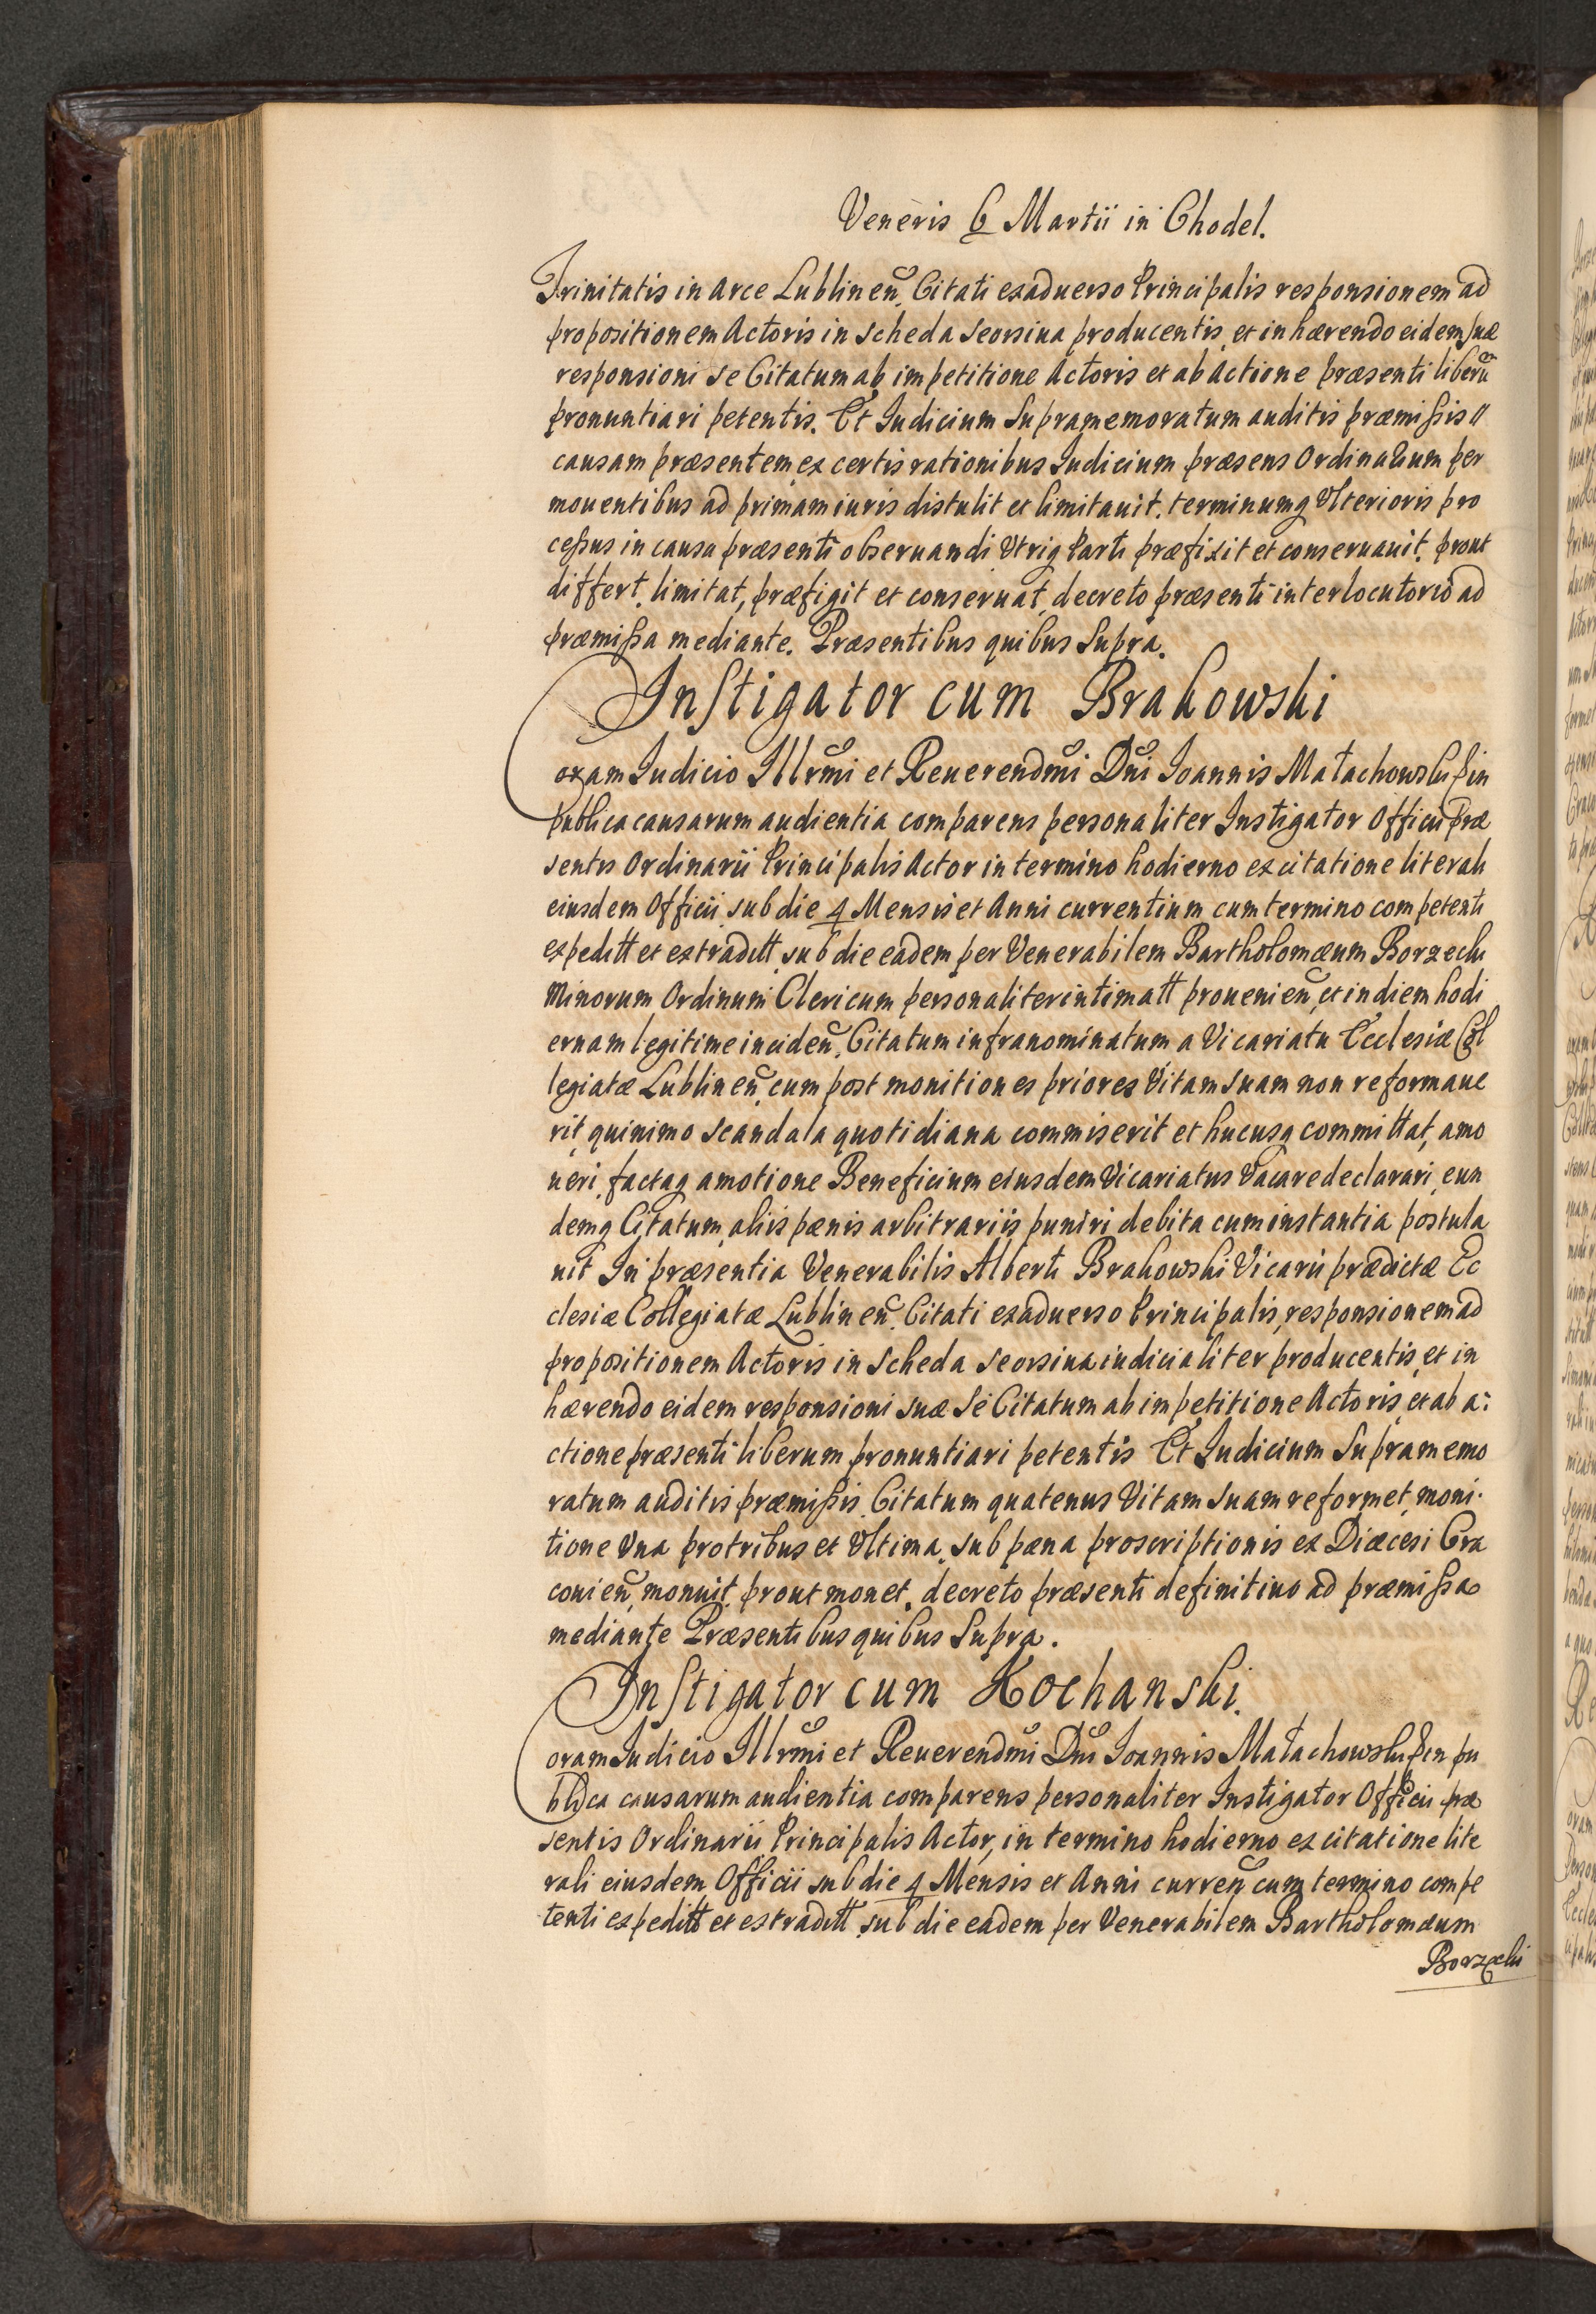 Veneris 6 Martii in Chodel.
Trinitatis in Arce Lublineñ. Citati exaduerso Principalis responsionem ad
propositionem Actoris in scheda seorsiua producentis, et inhærendo eidem suæ
responsioni se Citatum ab impetitione Actoris et ab Actione præsenti liberũ
pronuntiari petentis. Et Iudicium Supramemoratum auditis præmißis //
causam præsentem, ex certis rationibus Iudicium præsens Ordinarium per
mouentibus ad primam iuris distulit et limitauit. terminumq Vlterioris pro
ceßus in causa præsenti obseruandi Vtriq Parti præfixit et conseruauit. prout
differt, limitat, præfigit et conseruat, decreto præsenti interlocutorio ad
præmißa mediante. Præsentibus quibus Supra.
Instigator cum Brakowski
Coram Iudicio Illrmi et Reuerendmi Dni Ioannis Małachowski in
publica causarum audientia comparens personaliter Instigator Officii Præ
sentis Ordinarii Principalis Actor in termino hodierno ex citatione literali
eiusdem Officii sub die 4 Mensis et Anni currentium cum termino competenti
expeditt et extraditt sub die eadem per Venerabilem Bartholomæum Borzecki
Minorum Ordinum Clericum personaliter intimatt prouenieñ, et in diem hodi
ernam legitime incideñ, Citatum infranominatum a Vicariatu Ecclesiæ Col
legiatæ Lublineñ, cum post monitiones priores Vitam suam non reformaue
rit, quinimo scandala quotidiana commiserit et hucusq committat, amo
ueri, factaq amotione Beneficium eiusdem Vicariatus Vacare declarari, eun
demq Citatum, aliis pænis arbitrariis puniri debita cum instantia postula
uit In præsentia Venerabilis Alberti Brakowski Vicarii prædictæ Ec
clesiæ Collegiatæ Lublineñ. Citati exaduerso Principalis, responsionem ad
propositionem Actoris in scheda seorsiua iudicialiter producentis, et in
hærendo eidem responsioni suæ Se Citatum ab impetitione Actoris, et ab a:
ctione præsenti liberum pronuntiari petentis Et Iudicium Supramemo
ratum auditis præmißis, Citatum quatenus Vitam suam reformet, moni-
tione Vna pro tribus et Vltima, sub pæna proscriptionis ex Diæcesi Cra
couieñ, monuit prout monet, decreto præsenti definitiuo ad præmißa
mediante Præsentibus quibus Supra.
Instigator cum Kochanski.
Coram Iudicio Illrmi et Reuerendmi Dni Ioannis Małachowski in pu
blica causarum audientia comparens personaliter Instigator Officii præ
sentis Ordinarii Principalis Actor, in termino hodierno ex citatione lite
rali eiusdem Officii sub die 4 Mensis et Anni curreñ cum termino compe
tenti expeditt et extraditt sub die eadem per Venerabilem Bartholomæum
Borzecki